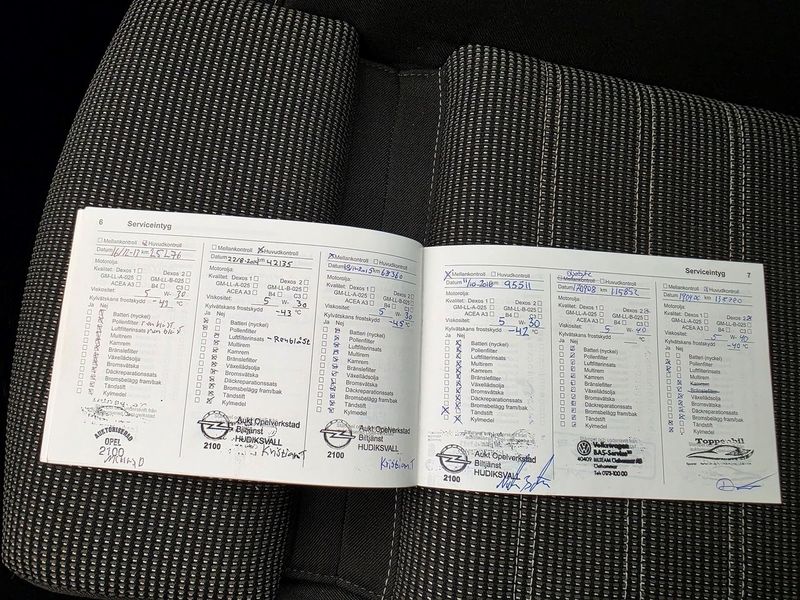 6 Serviceintyg
Mellankontroll Huvudkontroll
Datum km
Motorolja:
Kvalitet: Dexos 1 Dexos 2
GM-LL-A-025 GM-LL-B-025
ACEA A3 B4 C3
Viskositet: 5 W- 30
Kylvätskans frostskydd
Ja Nej
Batteri (nyckel)
Pollenfilter
Luftfilterinsats
Multirem
Kamrem
Bränslefilter
Växellådsolja
Bromsvätska
Däckreparationssats
Bromsbelägg fram/bak
Tändstift
Kylmedel
AUKTORISERAD
OPEL
2100
Mellankontroll Huvudkontroll
Datum km 42135
Motorolja:
Kvalitet: Dexos 1 Dexos 2
GM-LL-A-025 GM-LL-B-025
ACEA A3 B4 C3
Viskositet: 5 W- 30
Kylvätskans frostskydd -43 °C
Ja Nej
Batteri (nyckel)
Pollenfilter
Luftfilterinsats
Multirem
Kamrem
Bränslefilter
Växellådsolja
Bromsvätska
Däckreparationssats
Bromsbelägg fram/bak
Tändstift
Kylmedel
Aukt Opelverkstad
Biltjänst
HUDIKSVALL
2100
Kristian T
Mellankontroll Huvudkontroll
Datum km 68360
Motorolja:
Kvalitet: Dexos 1 Dexos 2
GM-LL-A-025 GM-LL-B-025
ACEA A3 B4 C3
Viskositet: 5 W- 30
Kylvätskans frostskydd -45 °C
Ja Nej
Batteri (nyckel)
Pollenfilter
Luftfilterinsats
Multirem
Kamrem
Bränslefilter
Växellådsolja
Bromsvätska
Däckreparationssats
Bromsbelägg fram/bak
Tändstift
Kylmedel
Aukt Opelverkstad
Biltjänst
HUDIKSVALL
2100
Kristian T
Serviceintyg 7
Mellankontroll Huvudkontroll
Datum 11/10-2018 km 95511
Motorolja:
Kvalitet: Dexos 1 Dexos 2
GM-LL-A-025 GM-LL-B-025
ACEA A3 B4 C3
Viskositet: 5 W- 30
Kylvätskans frostskydd -42 °C
Ja Nej
Batteri (nyckel)
Pollenfilter
Luftfilterinsats
Multirem
Kamrem
Bränslefilter
Växellådsolja
Bromsvätska
Däckreparationssats
Bromsbelägg fram/bak
Tändstift
Kylmedel
Aukt Opelverkstad
Biltjänst
HUDIKSVALL
2100
Oljebyte
Mellankontroll Huvudkontroll
Datum km 115852
Motorolja:
Kvalitet: Dexos 1 Dexos 2
GM-LL-A-025 GM-LL-B-025
ACEA A3 B4 C3
Viskositet: 5 W- 40
Kylvätskans frostskydd °C
Ja Nej
Batteri (nyckel)
Pollenfilter
Luftfilterinsats
Multirem
Kamrem
Bränslefilter
Växellådsolja
Bromsvätska
Däckreparationssats
Bromsbelägg fram/bak
Tändstift
Kylmedel
Volkswagen
BAS-Service
Mellankontroll Huvudkontroll
Datum km
Motorolja:
Kvalitet: Dexos 1 Dexos 2
GM-LL-A-025 GM-LL-B-025
ACEA A3 B4 C3
Viskositet: 5 W- 40
Kylvätskans frostskydd -40 °C
Ja Nej
Batteri (nyckel)
Pollenfilter
Luftfilterinsats
Multirem
Kamrem
Bränslefilter
Växellådsolja
Bromsvätska
Däckreparationssats
Bromsbelägg fram/bak
Tändstift
Kylmedel